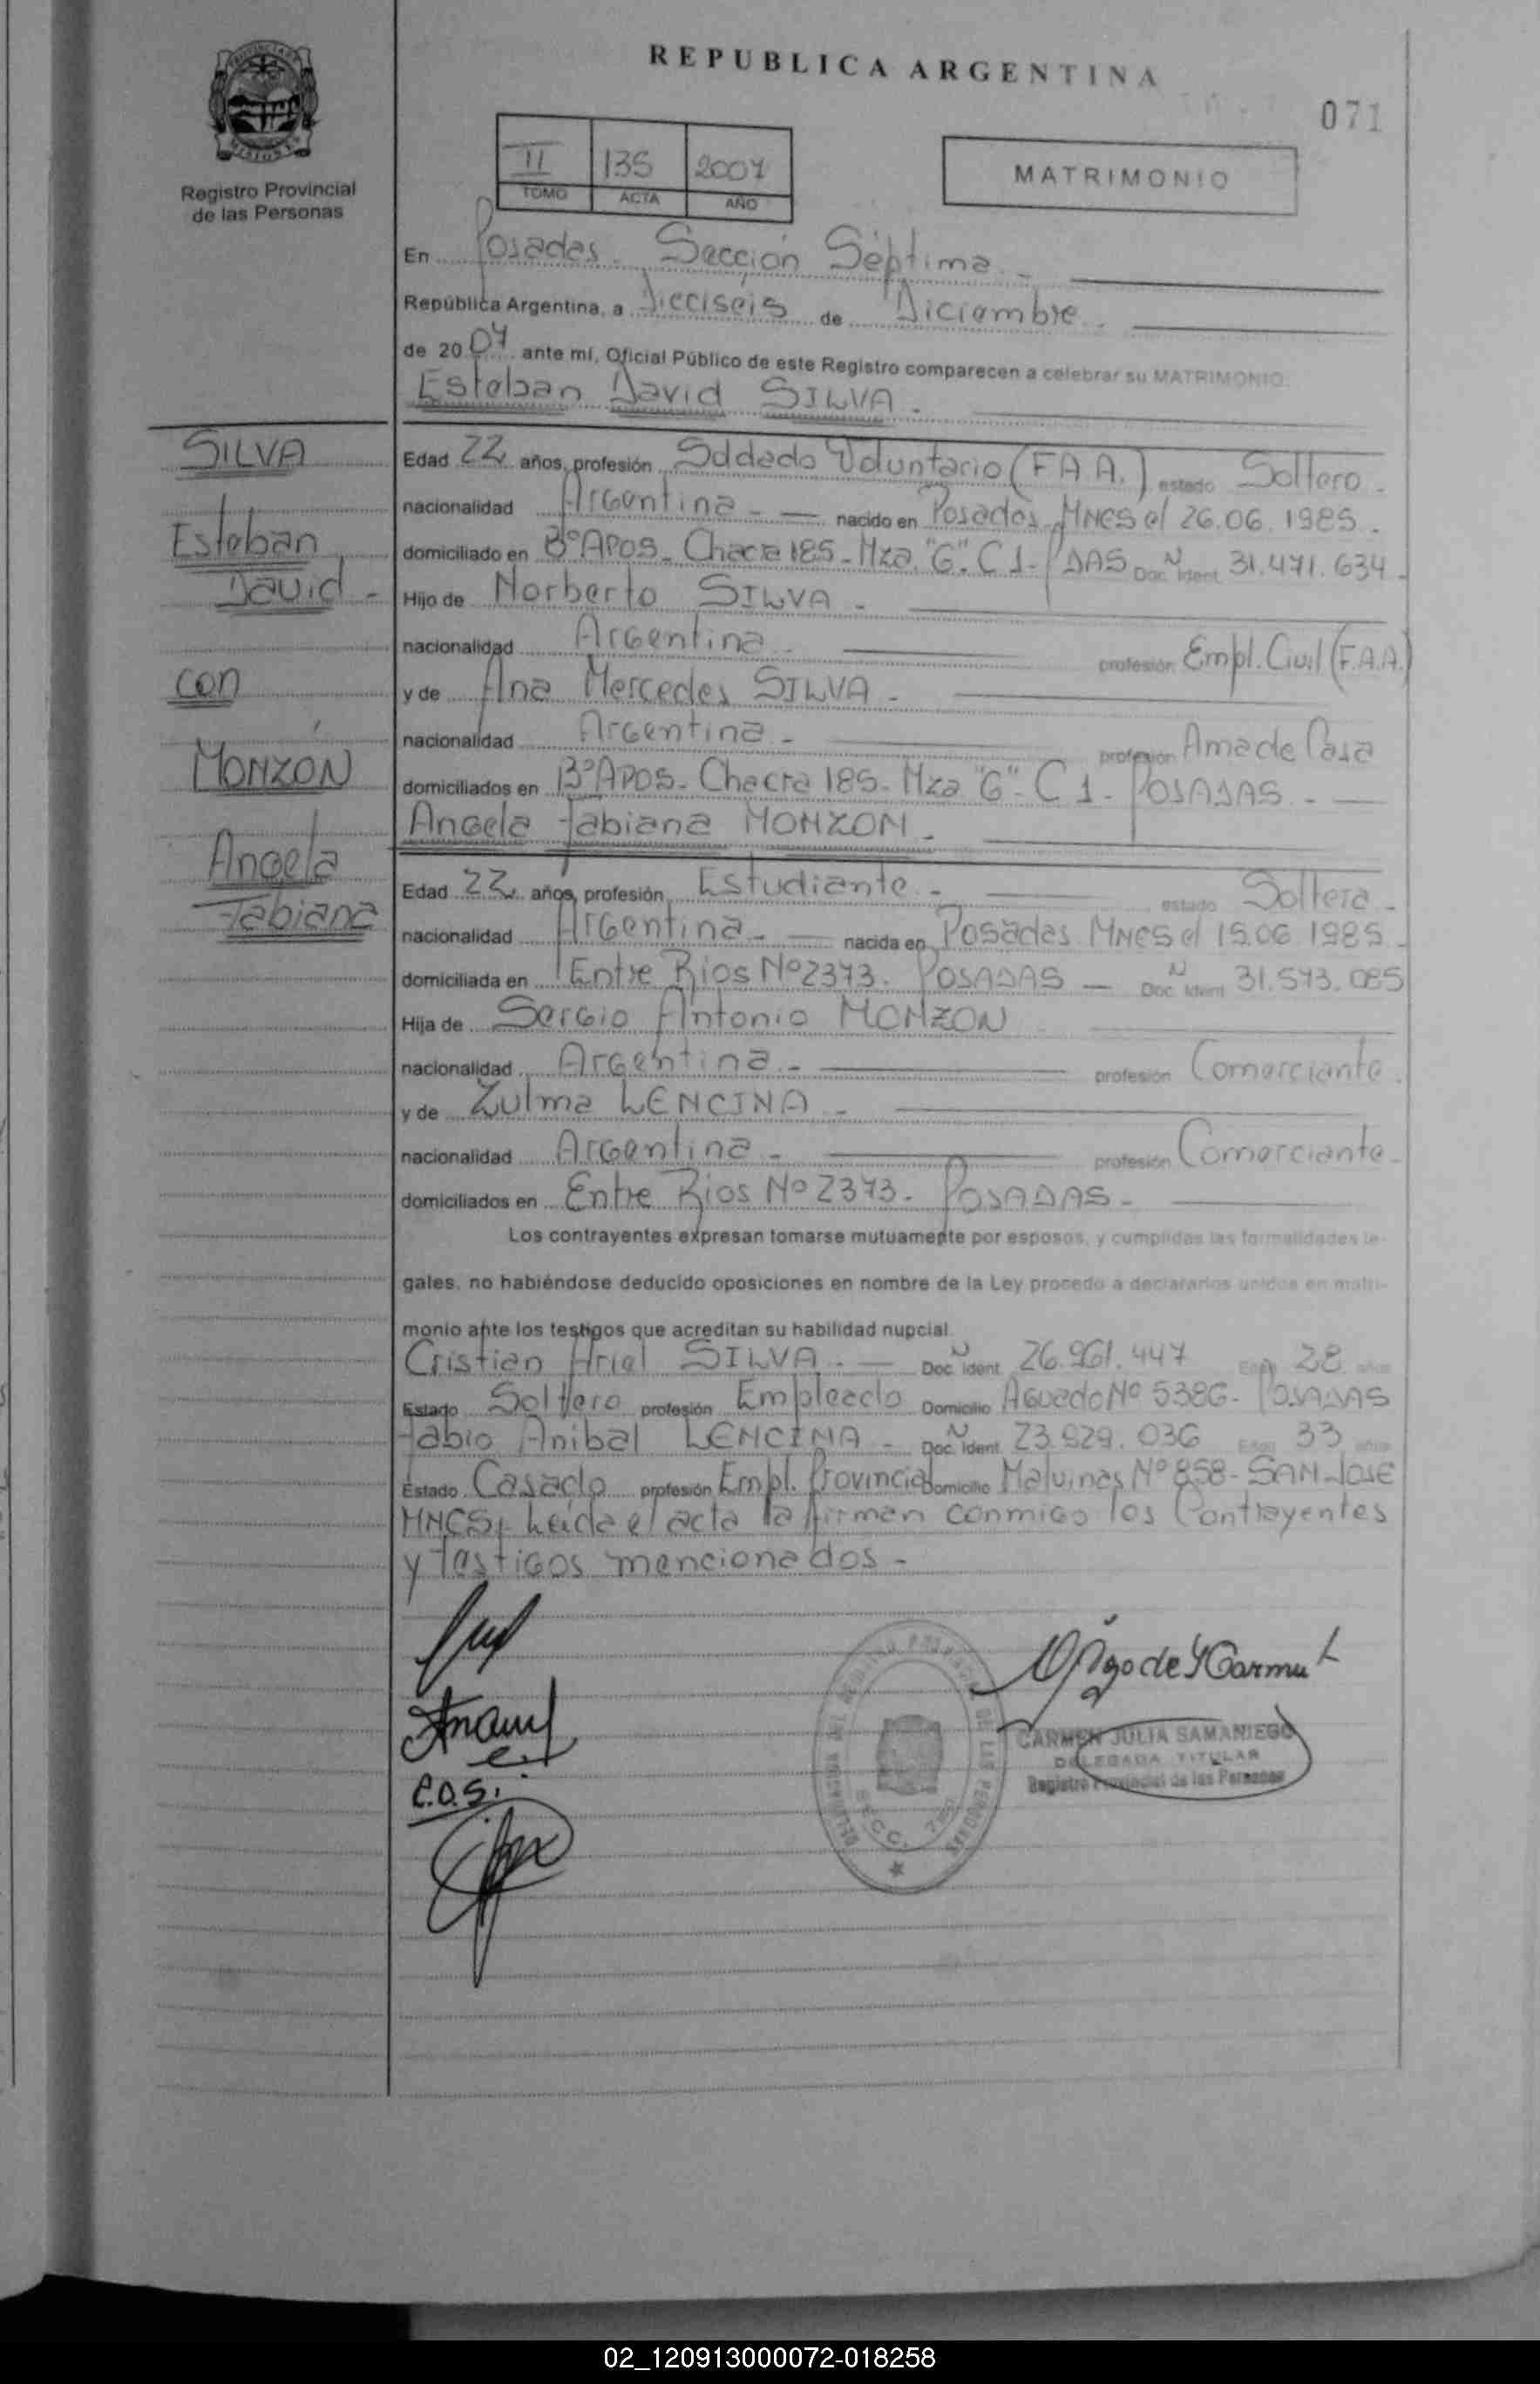 REPUBLICA ARGENTINA
071
Registro Provincial
de las Personas
II 135 2007
TOMO ACTA AÑO
MATRIMONIO
En Posadas. Sección Séptima.-
República Argentina, a Dieciseis de Diciembre.
de 2007 ante mí, Oficial Público de este Registro comparecen a celebrar su MATRIMONIO.
Esteban David SILVA.
SILVA
Esteban
David-
con
MONZÓN
Angela
Fabiana
Edad 22 años, profesión Soldado Voluntario (F.A.A.) estado Soltero-
nacionalidad Argentina.- nacido en Posadas, MNES el 26.06.1985.
domiciliado en B°APOS- Chacra 185-Mza."G".C 1- PDAS Doc. Ident. N 31.471.634-
Hijo de Norberto SILVA.
nacionalidad Argentina.- profesión Empl. Civil (F.A.A.)
y de Ana Mercedes SILVA-
nacionalidad Argentina- profesión Ama de Casa
domiciliados en B°APOS- Chacra 185-Mza "G"-C 1-POSADAS.-
Angela Fabiana MONZON.
Edad 22 años, profesión Estudiante- estado Soltera-
nacionalidad Argentina.- nacida en Posadas MNES el 15.06.1985.
domiciliada en Entre Rios N°2373. POSADAS - Doc. Ident. N 31.573.085
Hija de Sergio Antonio MONZON
nacionalidad Argentina.- profesión Comerciante.
y de Zulma LENCINA-
nacionalidad Argentina- profesión Comerciante-
domiciliados en Entre Rios N°2373. POSADAS-
Los contrayentes expresan tomarse mutuamente por esposos, y cumplidas las formalidades le-
gales, no habiéndose deducido oposiciones en nombre de la Ley procedo a declararlos unidos en matri-
monio ante los testigos que acreditan su habilidad nupcial.
Cristian Ariel SILVA.- Doc. Ident. N 26.961.447 Edad 28 años
Estado Soltero profesión Empleado Domicilio Aguado N° 5386-POSADAS
Fabio Anibal LENCINA- Doc. Ident. N 23.929.036 Edad 33 años
Estado Casado profesión Empl. Provincial Domicilio Malvinas N°858-SAN JOSE
MNES, Leida el acta la firman conmigo los Contrayentes
y testigos mencionados-
C.O.S.
CARMEN JULIA SAMANIEGO
DELEGADA TITULAR
Registro Provincial de las Personas
SECC.
02_120913000072-018258